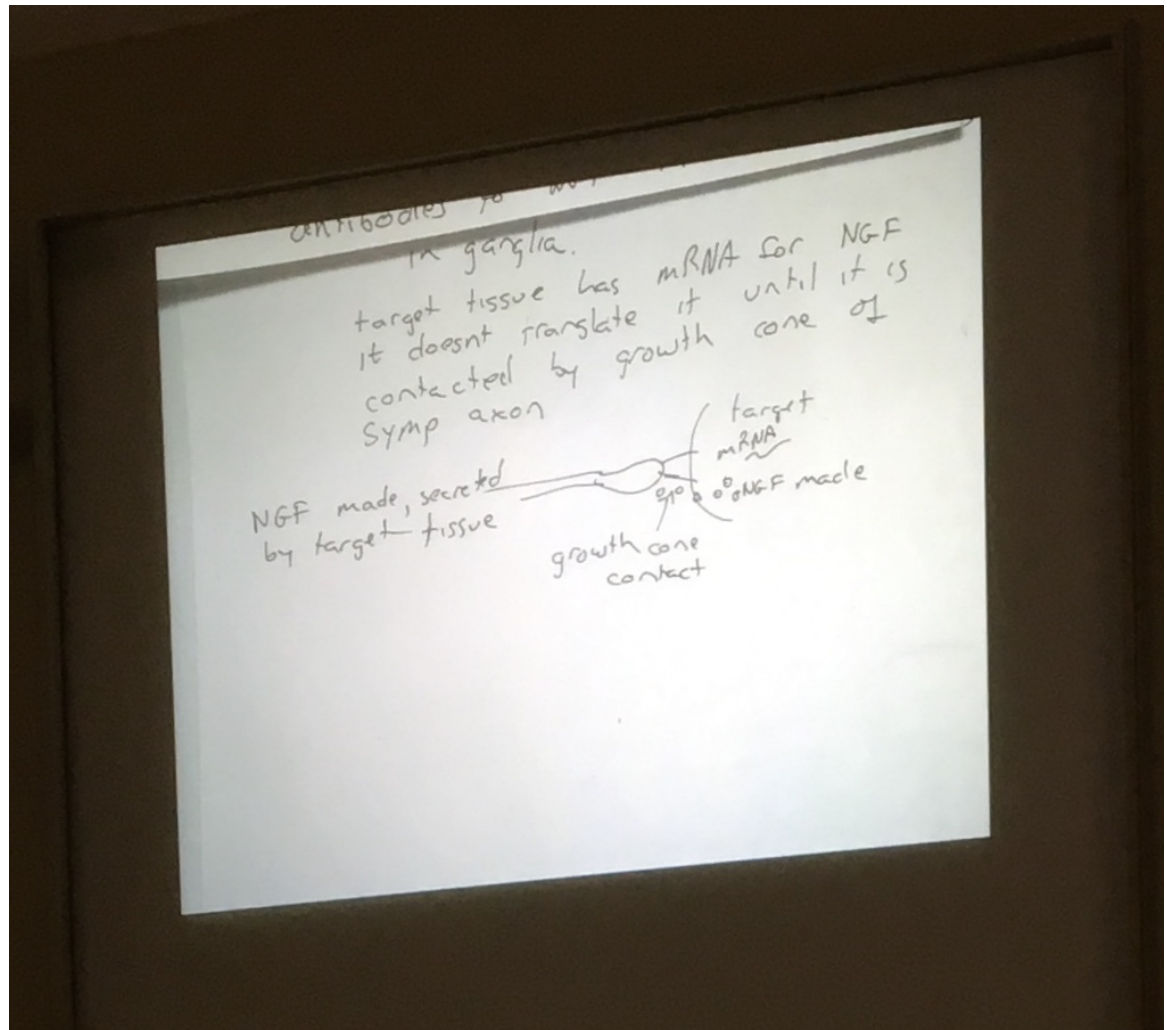 antibodies to
in ganglia.
target tissue has mRNA for NGF
it doesnt translate it until it is
contacted by growth cone of
symp axon
target
mRNA
NGF made, secreted
by target tissue
NGF made
growth cone
contact